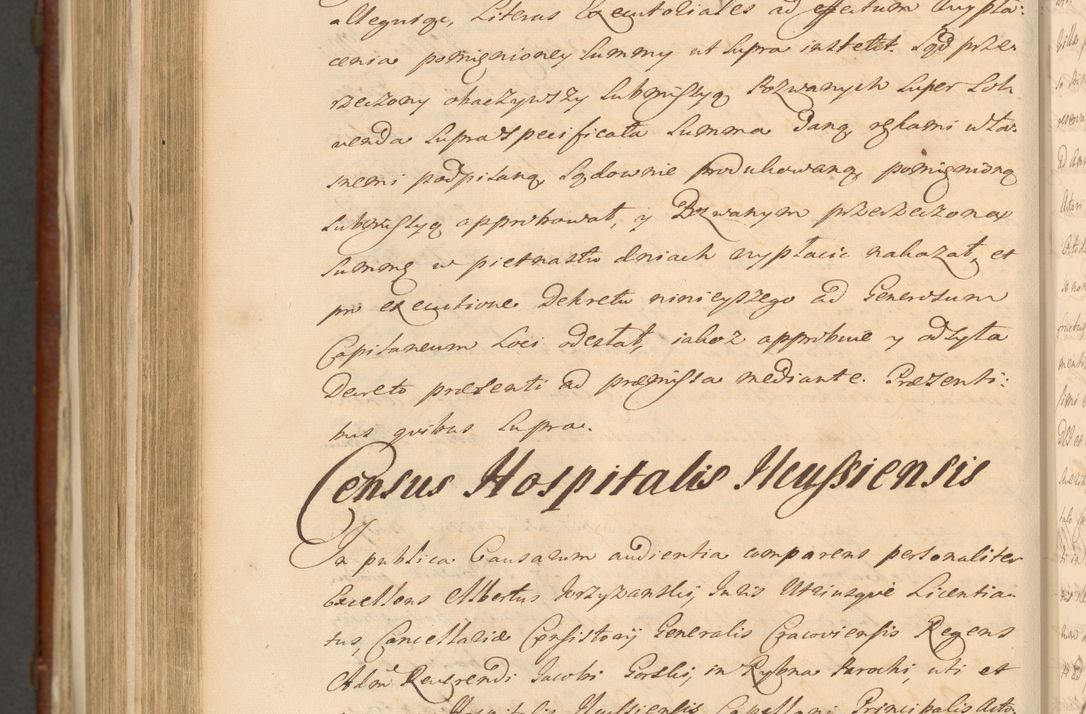 allegując, Literas Executoriales ad effectum wypła:
cenia pomienioney Summy ut supra instetit. Sąd prze:
rzeczony obaczywszy Submissyą Pozwanych super Sol:
venda supra Specificata Summa daną rękami wła:
snemi podpisaną, Sądownie produkowaną, pomienioną
Submissyą approbował, y Pozwanym przerzeczoną
Summę w pietnastu dniach wypłacić nakazał, et
pro executione Dekretu ninieyszego ad Generosum
Capitaneum Loci odesłał, iakoż approbuie y odsyła
Decreto præsenti ad præmissa mediante. Præsenti:
bus quibus supra.
Census Hospitalis Ilcussiensis
In publica Causarum audientia comparens personaliter
Excellens Albertus Jorzyzanski, Juris Utriusque Licentia:
tus, Cancellariæ Consistorij Generalis Cracoviensis Regens
Adm. Reverendi Jacobi Gorski, in Rybna Parochi, uti et
Hospitalis Ilcussiensis Capellani Principalis Acto: